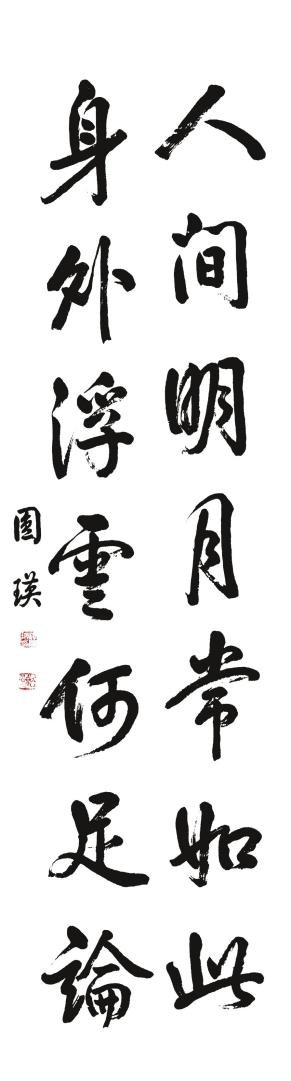 人间明月常如此
身外浮雲何足論
圆瑛